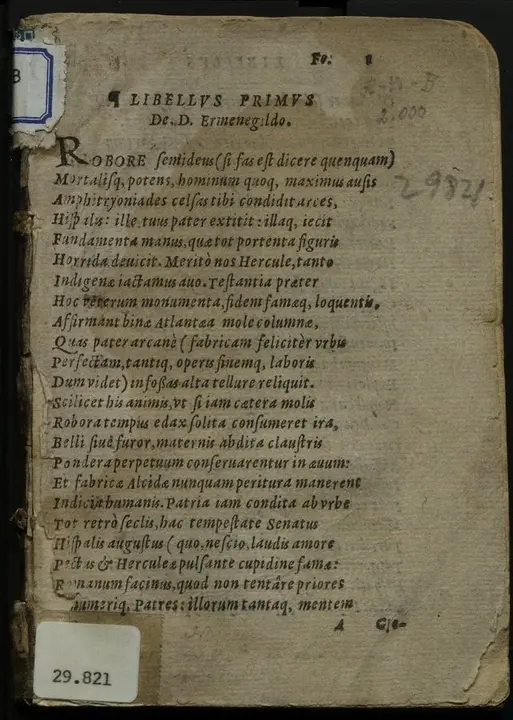 Fo: 1
¶ LIBELLVS PRIMVS
De. D. Ermenegildo.
ROBORE semideus (si fas est dicere quenquam)
Mortalisq, potens, hominum quoq, maximus ausis
Amphitryoniades celsas tibi condidit arces,
Hispalis: ille tuus pater extitit: illaq, iecit
Fundamenta manus, quæ tot portenta figuris
Horrida deuicit. Meritò nos Hercule, tanto
Indigenæ iactamus auo. Testantia præter
Hoc vêterum monumenta, fidem famæq, loquentis,
Affirmant binæ Atlantæa mole columnæ,
Quas pater arcanè (fabricam felicitèr vrbis
Perfectam, tantiq, operis finemq, laboris
Dum videt) infoßas alta tellure reliquit.
Scilicet his animis, vt si iam cætera molis
Robora tempus edax solita consumeret ira,
Belli siuè furor, maternis abdita claustris
Pondera perpetuum conseruarentur in æuum:
Et fabricæ Alcidæ nunquam peritura manerent
Indicia humanis. Patria iam condita ab vrbe
Tot retrò seclis, hac tempestate Senatus
Hispalis augustus (quo, nescio, laudis amore
Pectus & Herculeæ pulsante cupidine famæ:
Romanum facinus, quod non tentâre priores
Numeriq, Patres: illorum tantaq, mentem
A Cge-
2.000
29821
8
29.821